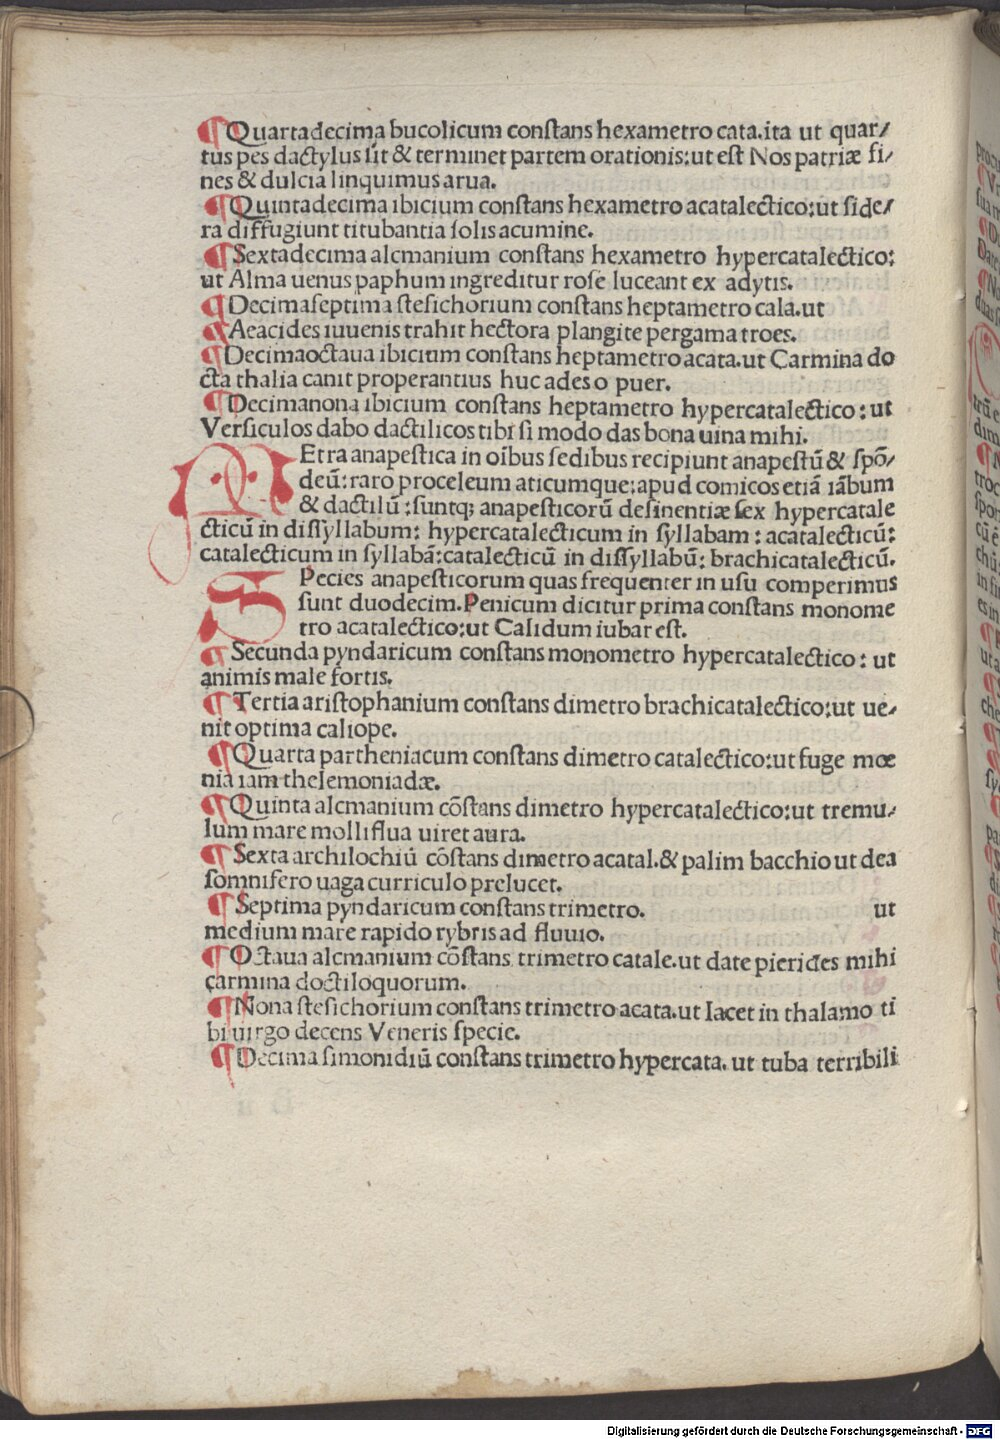 ¶Quartadecima bucolicum conſtans hexametro cata.ita ut quar/
tus pes dactylus ſit & terminet partem orationis:ut eſt Nos patriæ fi/
nes & dulcia linquimus arua.
¶Quintadecima ibicium conſtans hexametro acatalectico:ut ſide/
ra diffugiunt titubantia ſolis acumine.
¶Sextadecima alcmanium conſtans hexametro hypercatalectico:
ut Alma uenus paphum ingreditur roſe luceant ex adytis.
¶Decimaſeptima ſteſichorium conſtans heptametro cala.ut
¶Aeacides iuuenis trahit hectora plangite pergama troes.
¶Decimaoctaua ibicium conſtans heptametro acata.ut Carmina do
cta thalia canit properantius huc ades o puer.
¶Decimanona ibicium conſtans heptametro hypercatalectico:ut
Verſiculos dabo dactilicos tibi ſi modo das bona uina mihi.
MEtra anapeſtica in oībus ſedibus recipiunt anapeſtū & ſpō/
deū:raro proceleum aticumque:apud comicos etiā iābum
& dactilū:ſuntq; anapeſticorū deſinentiæ ſex hypercatale
cticū in diſſyllabum: hypercatalecticum in ſyllabam: acatalecticū:
catalecticum in ſyllabā:catalecticū in diſſyllabū: brachicatalecticū.
SPecies anapeſticorum quas frequenter in uſu comperimus
ſunt duodecim.Penicum dicitur prima conſtans monome
tro acatalectico:ut Calidum iubar eſt.
¶Secunda pyndaricum conſtans monometro hypercatalectico: ut
animis male fortis.
¶Tertia ariſtophanium conſtans dimetro brachicatalectico:ut ue/
nit optima caliope.
¶Quarta partheniacum conſtans dimetro catalectico:ut fuge mœ
nia iam thelemoniadæ.
¶Quinta alcmanium cōſtans dimetro hypercatalectico:ut tremu/
lum mare molliflua uiret aura.
¶Sexta archilochiū cōſtans dimetro acatal.& palim bacchio ut dea
ſomnifero uaga curriculo prelucet.
¶Septima pyndaricum conſtans trimetro. ut
medium mare rapido rybris ad fluuio.
¶Octaua alcmanium cōſtans trimetro catale.ut date pierides mihi
carmina doctiloquorum.
¶Nona ſteſichorium conſtans trimetro acata.ut Iacet in thalamo ti
bi uirgo decens Veneris ſpecie.
¶Decima ſimonidiū conſtans trimetro hypercata. ut tuba terribili
Digitalisierung gefördert durch die Deutsche Forschungsgemeinschaft - DFG